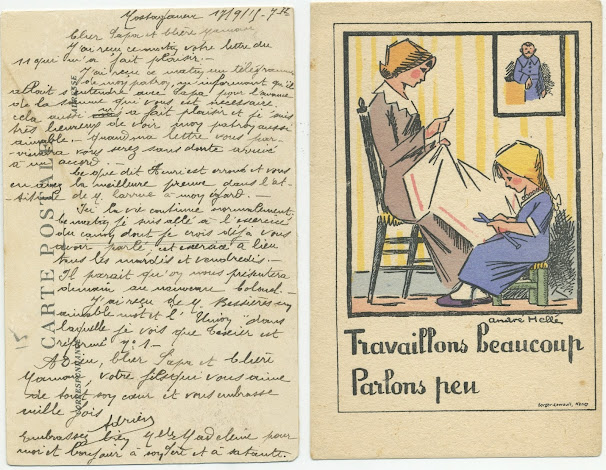 Mostaganem 17/9/15
Cher Papa et Chère Maman
J'ai reçu ce matin votre lettre du
11 qui m'a fait plaisir.
J'ai reçu ce matin un télégramme
de mon patron m'informant qu'il
allait s'entendre avec Papa pour l'avance
de la somme qui vous est nécessaire.
cela aussi m'a fait plaisir et je suis
très heureux de voir mon patron aussi
aimable. Quand ma lettre vous par-
viendra vous serez sans doute arrivé
à un accord.
Ce que dit Henri est erroné et vous
en avez la meilleure preuve dans l'at-
titude de M. Carrue à mon égard.
Ici la vie continue normalement,
ce matin je suis allé à l'exercice
du canon dont je crois déjà vous
avoir parlé cet exercice a lieu
tous les mardis et vendredis.
Il parait qu'on nous présentera
demain au nouveau Colonel.
J'ai reçu de M. Bessières un
aimable mot et l'"Union" dans
laquelle je vois que Teisier est
réformé n° 1.
Adieu, Cher Papa et Chère
Maman, votre fils qui vous aime
de tout son cœur et vous embrasse
mille fois
Adrien
Embrassez bien Melle Madeleine pour
moi et bonjour à son frère et à sa tante.
CARTE POSTALE
CORRESPONDANCE
ADRESSE
André Hellé
Travaillons beaucoup
Parlons peu
Berger-Levrault, Nancy